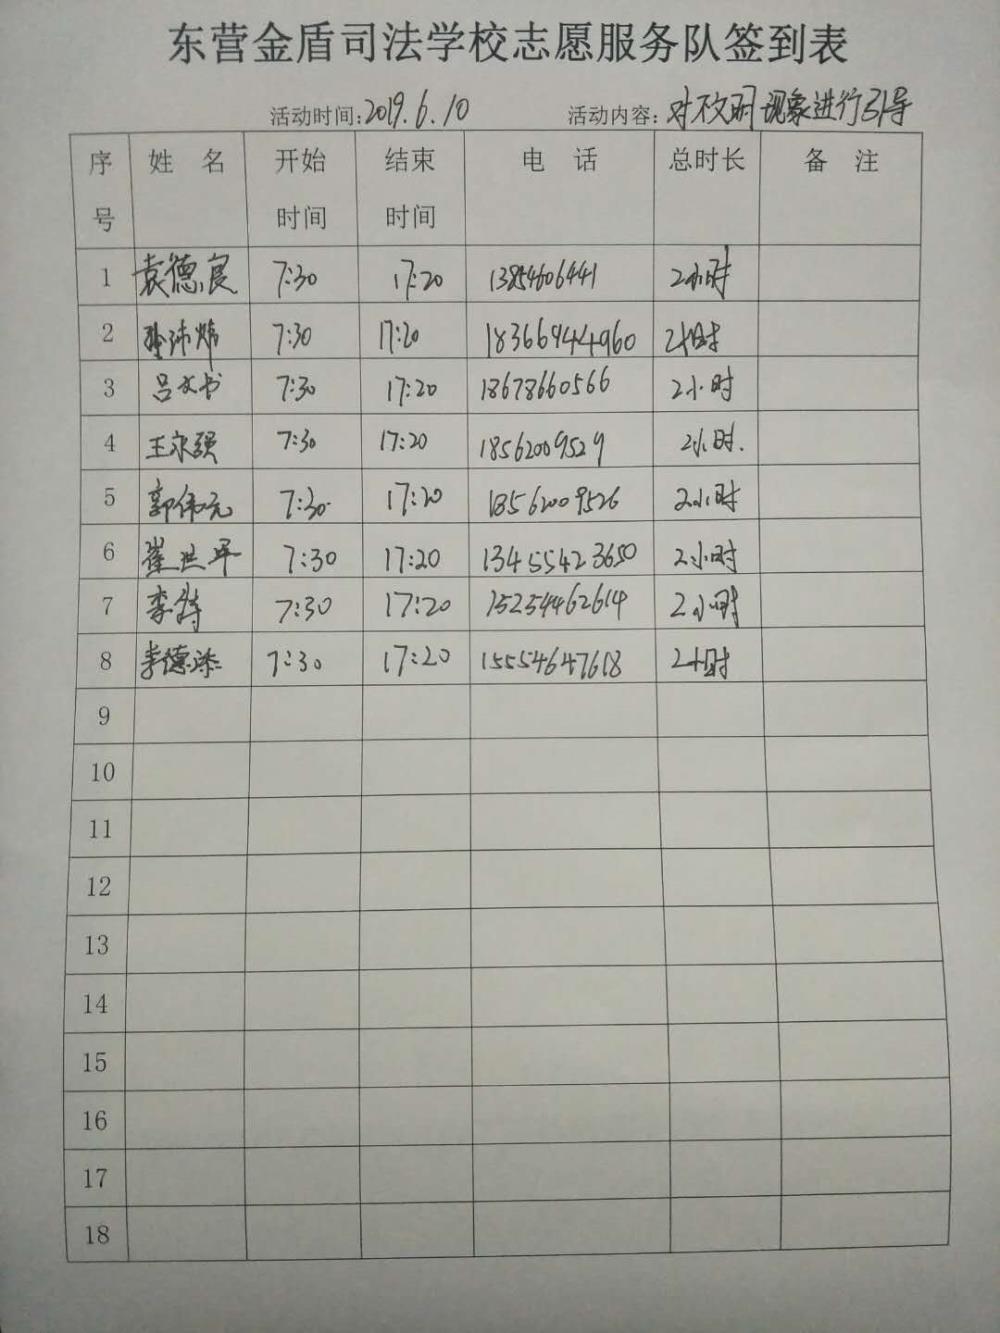 东营金盾司法学校志愿服务队签到表
活动时间:2019.6.10 活动内容:对不文明现象进行引导
序号 姓名 开始时间 结束时间 电话 总时长 备注
1 袁德良 7:30 17:20 13854606441 2小时
2 7:30 17:20 18366944960 2小时
3 吕文书 7:30 17:20 18678660566 2小时
4 王永强 7:30 17:20 18562009529 2小时.
5 郭伟元 7:30 17:20 18562009526 2小时
6 崔世平 7:30 17:20 13455423650 2小时
7 李涛 7:30 17:20 15254462614 2小时
8 李德 7:30 17:20 15554647618 2小时
9
10
11
12
13
14
15
16
17
18